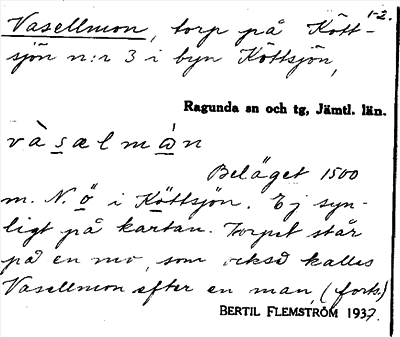 1-2.
Vasellmon, torp på Kött-
sjön n:r 3 i byn Köttsjön,
Ragunda sn och tg, Jämtl. län.
và s æ l m ò n
Beläget 1500
m. N. ö i Köttsjön. Ej syn-
ligt på kartan. Torpet står
på en mo, som också kallas
Vasellmon efter en man, (forts.)
BERTIL FLEMSTRÖM 1937.